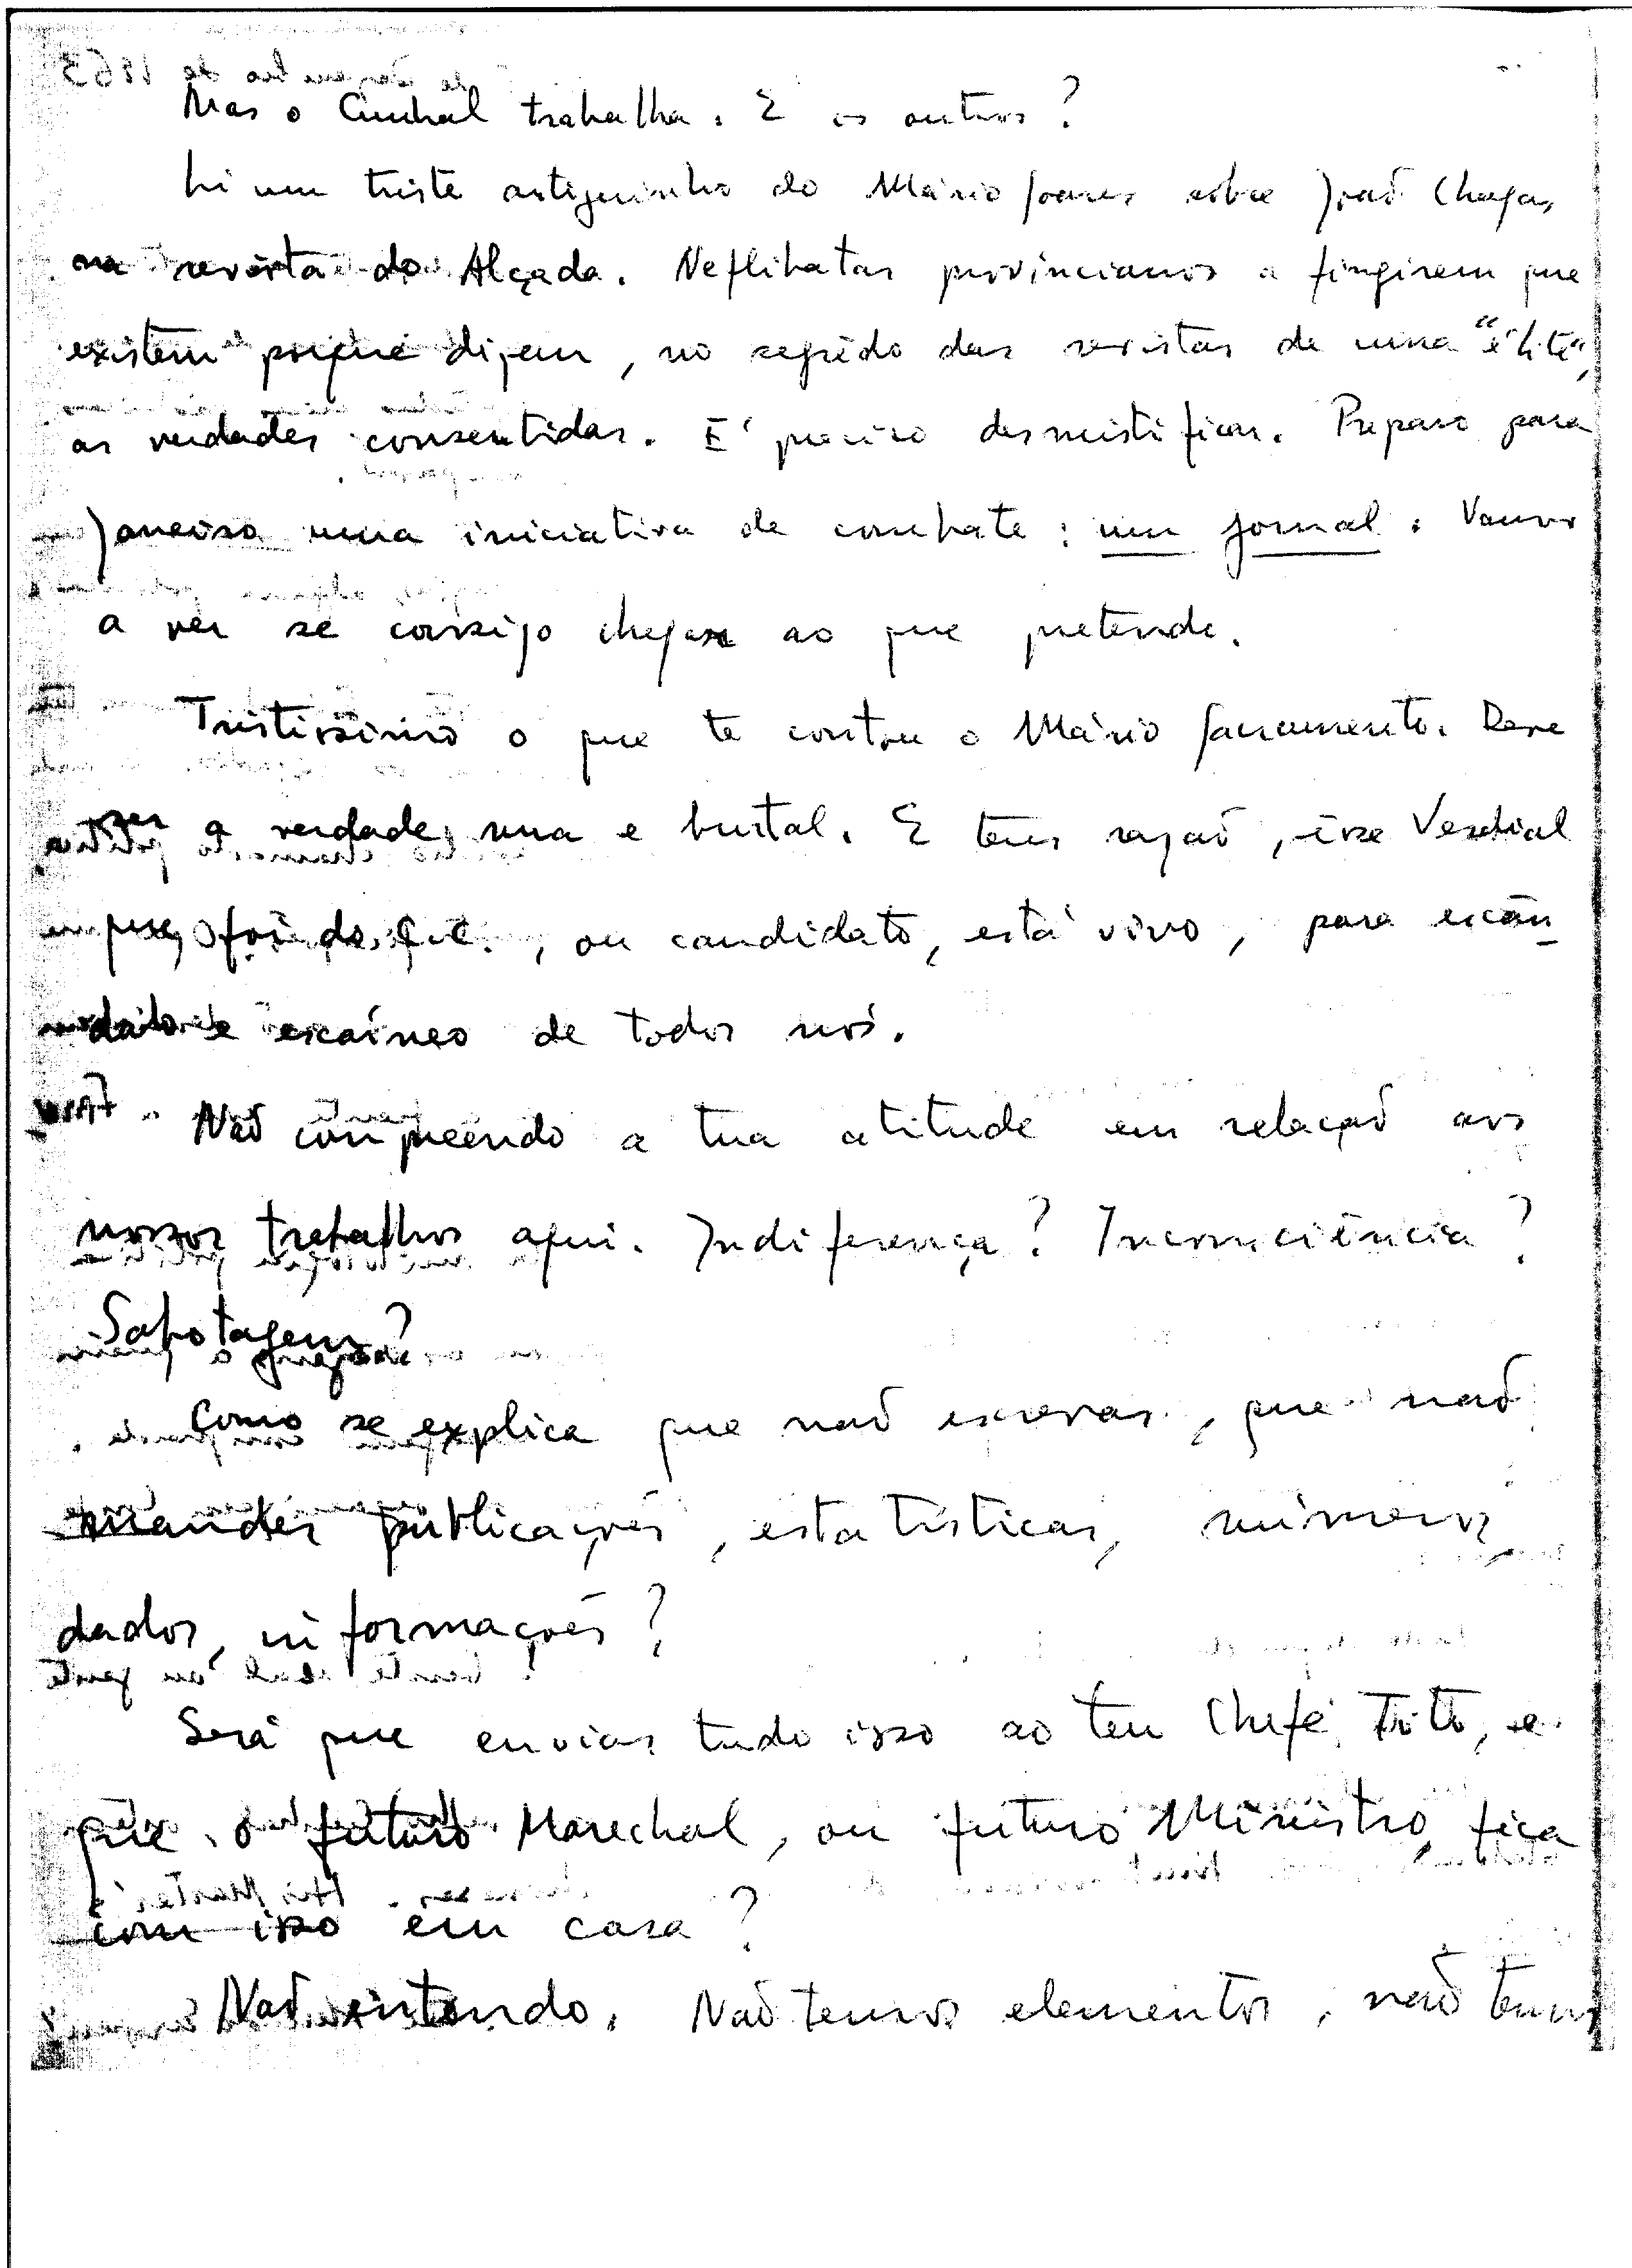 Mas o Cunhal trabalha. E os outros?
Li um triste artiguinho do Mário Soares sobre João Chagas,
na revista do Alçada. Neflibatas provincianos a fingirem que
existem porque dizem, no segrêdo das revistas de uma "élite",
as verdades consentidas. É preciso desmistificar. Preparo para
Janeiro uma iniciativa de combate: um jornal. Vamos
a ver se consigo chegar ao que pretendo.
Tristíssimo o que te contou o Mário Sacramento. Deve
ser a verdade, nua e brutal. E tens razão, êsse Verdial
que foi do C.C., ou candidato, está vivo, para escân
dalo e escárneo de todos nós.
Não compreendo a tua atitude em relação aos
nossos trabalhos aqui. Indiferença? Inconsciência?
Sabotagem?
Como se explica que não escrevas, que não
mandes publicações, estatísticas, números,
dados, informações?
Será que envias tudo isso ao teu Chefe, Tito, e
que o futuro Marechal, ou futuro Ministro, fica
com isso em casa?
Não entendo. Não temos elementos, não temos